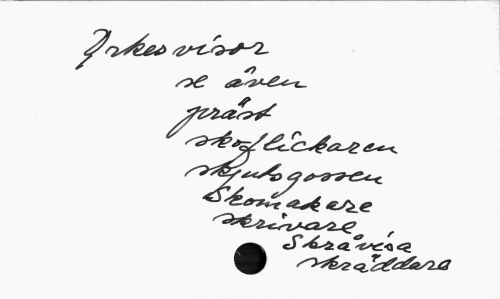 Yrkesvisor
se även
präst
skoflickaren
skjutsgossen
Skomakare
skrivare
Skråvisa
skräddare